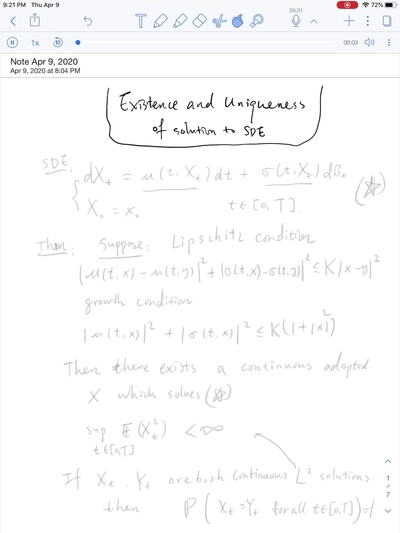 9:21 PM Thu Apr 9
72%
39:31
1x
10
00:03
Note Apr 9, 2020
Apr 9, 2020 at 8:04 PM
Existence and Uniqueness
of solution to SDE
SDE:
dX_t = μ(t, X_t)dt + σ(t, X_t)dB_t
X_0 = x_0    t∈[0,T].    (☆)
Thm: Suppose: Lipschitz condition
|μ(t,x) − μ(t,y)|² + |σ(t,x) − σ(t,y)|² ≤ K|x−y|²
growth condition
|μ(t,x)|² + |σ(t,x)|² ≤ K(1+|x|²)
Then there exists a continuous adapted
X which solves (☆)
sup E(X_t²) < ∞
t∈[0,T]
If X_t, Y_t are both continuous L² solutions
then P(X_t = Y_t for all t∈[0,T]) = 1
1
/
7